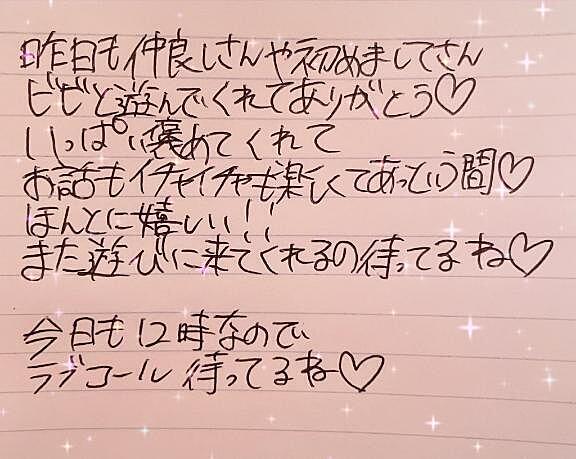 昨日も仲良しさんや初めましてさん
ビビと遊んでくれてありがとう♡
いっぱい褒めてくれて
お話もイチャイチャも楽しくてあっという間♡
ほんとに嬉しい!!
また遊びに来てくれるの待ってるね♡
今日も12時なので
ラブコール待ってるね♡